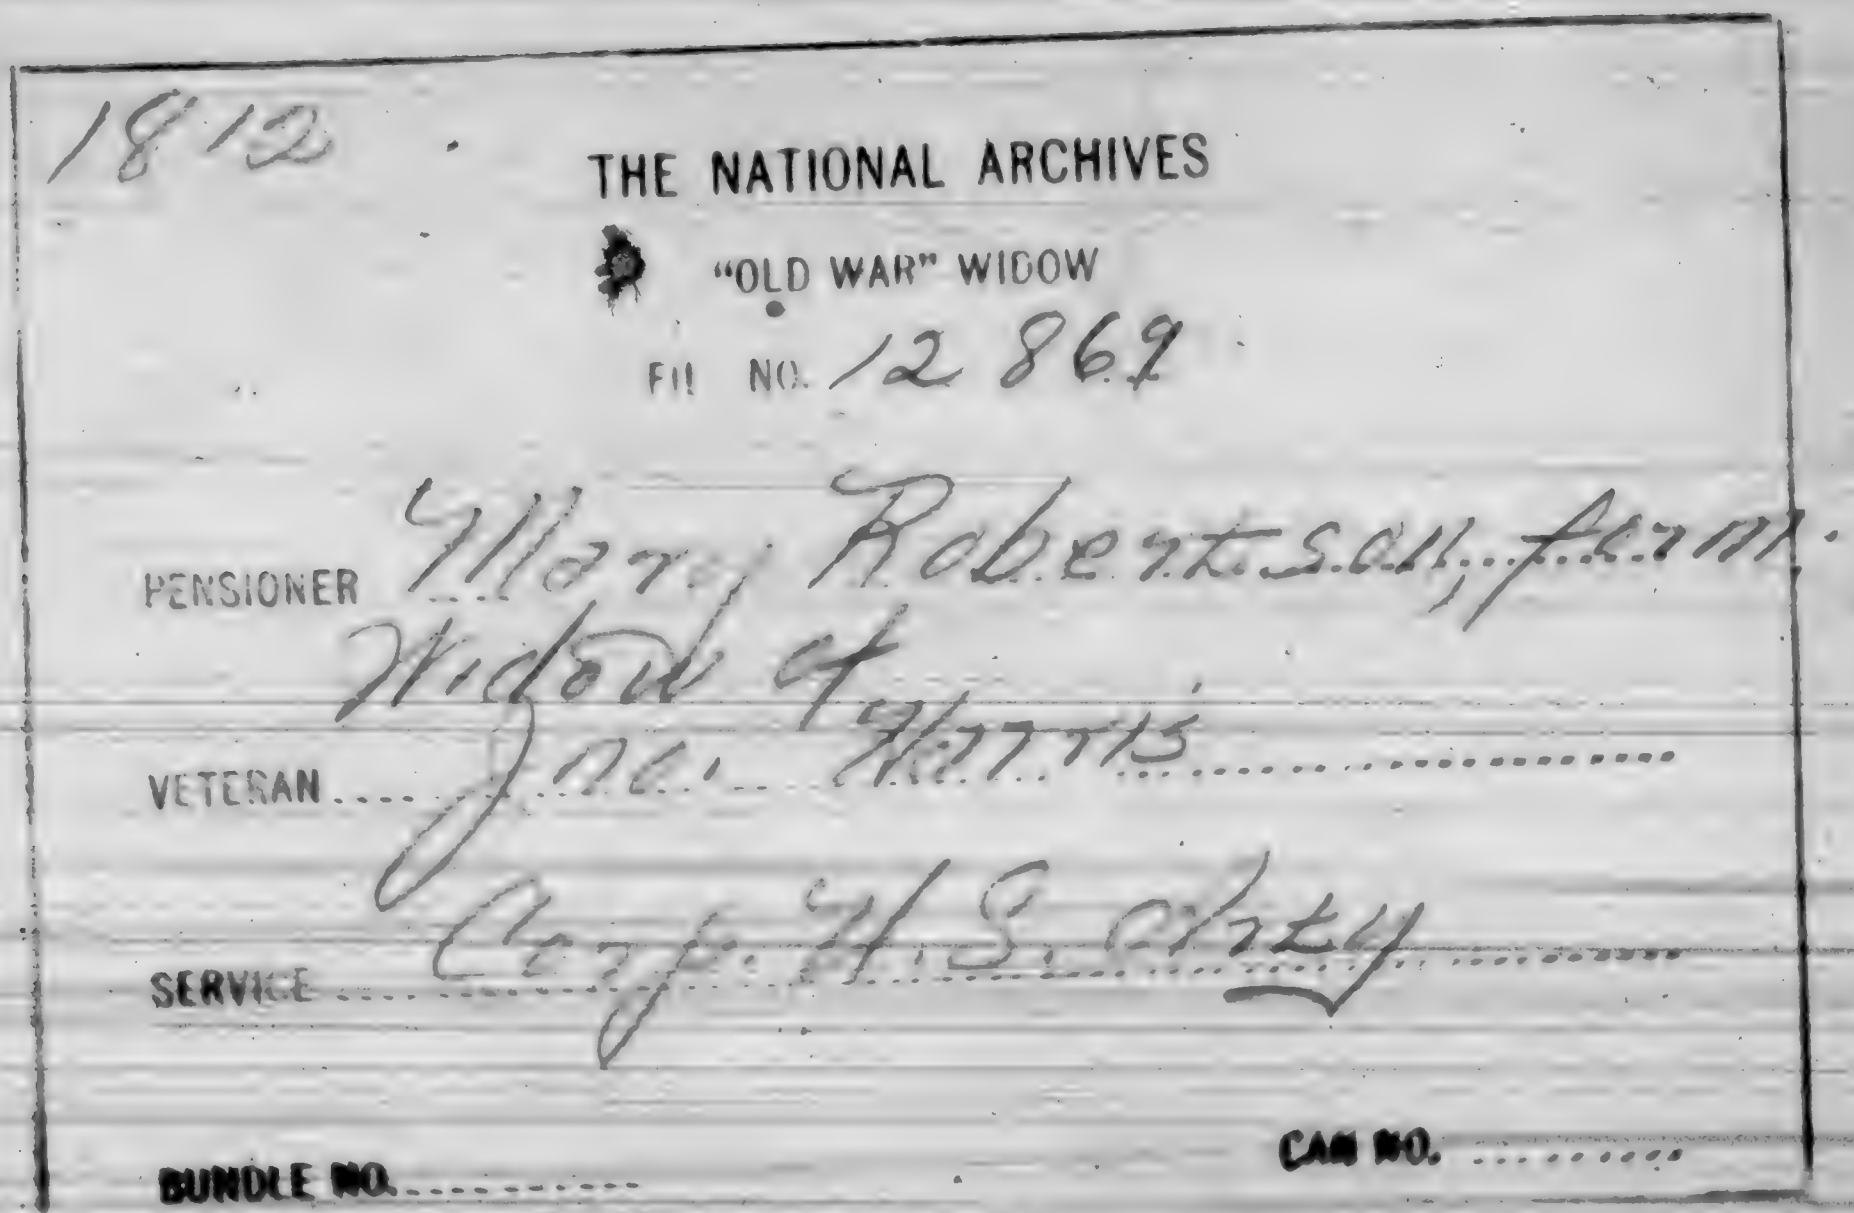 1812
THE NATIONAL ARCHIVES
"OLD WAR" WIDOW
FIL NO. 12 869
PENSIONER Mary Robertson, form.
Widow of
VETERAN Jno. Harris
SERVICE Corp. U.S. Arty
BUNDLE NO.
CAN NO.